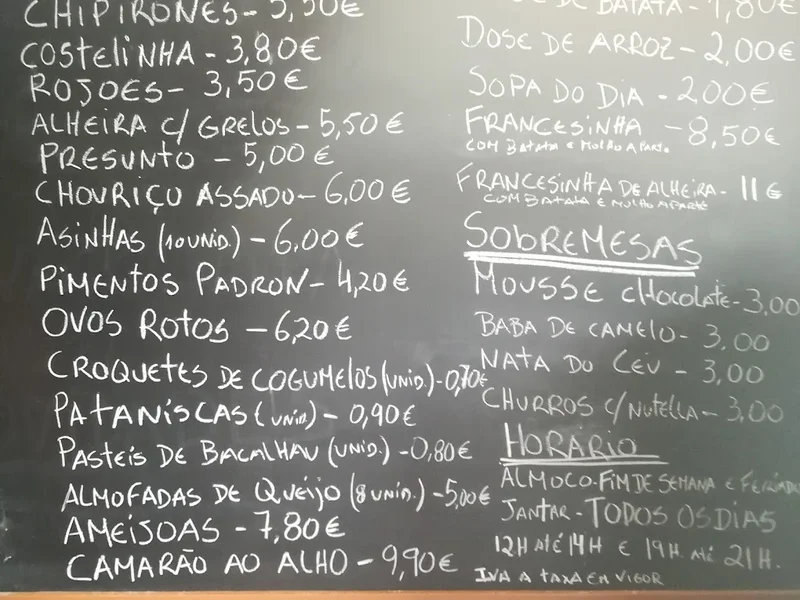 CHIPIRONES - 5,50€
COSTELINHA - 3,80€
ROJOES - 3,50€
ALHEIRA C/ GRELOS - 5,50€
PRESUNTO - 5,00€
CHOURIÇO ASSADO - 6,00€
ASINHAS (10 UNID.) - 6,00€
PIMENTOS PADRON - 4,20€
OVOS ROTOS - 6,20€
CROQUETES DE COGUMELOS (UNID.) - 0,70€
PATANISCAS (UNID) - 0,90€
PASTEIS DE BACALHAU (UNID.) - 0,80€
ALMOFADAS DE QUEIJO (8 UNID.) - 5,00€
AMEIJOAS - 7,80€
CAMARÃO AO ALHO - 9,90€
DE BATATA - 1,80€
DOSE DE ARROZ - 2,00€
SOPA DO DIA - 2,00€
FRANCESINHA - 8,50€
COM BATATA E MOLHO APARTE
FRANCESINHA DE ALHEIRA - 11€
COM BATATA E MOLHO APARTE
SOBREMESAS
MOUSSE CHOCOLATE - 3,00
BABA DE CAMELO - 3,00
NATA DO CEU - 3,00
CHURROS C/ NUTELLA - 3,00
HORÁRIO
ALMOCO - FIM DE SEMANA E FERIADO
JANTAR - TODOS OS DIAS
12H ATÉ 14H E 19H ATÉ 21H.
IVA A TAXA EM VIGOR